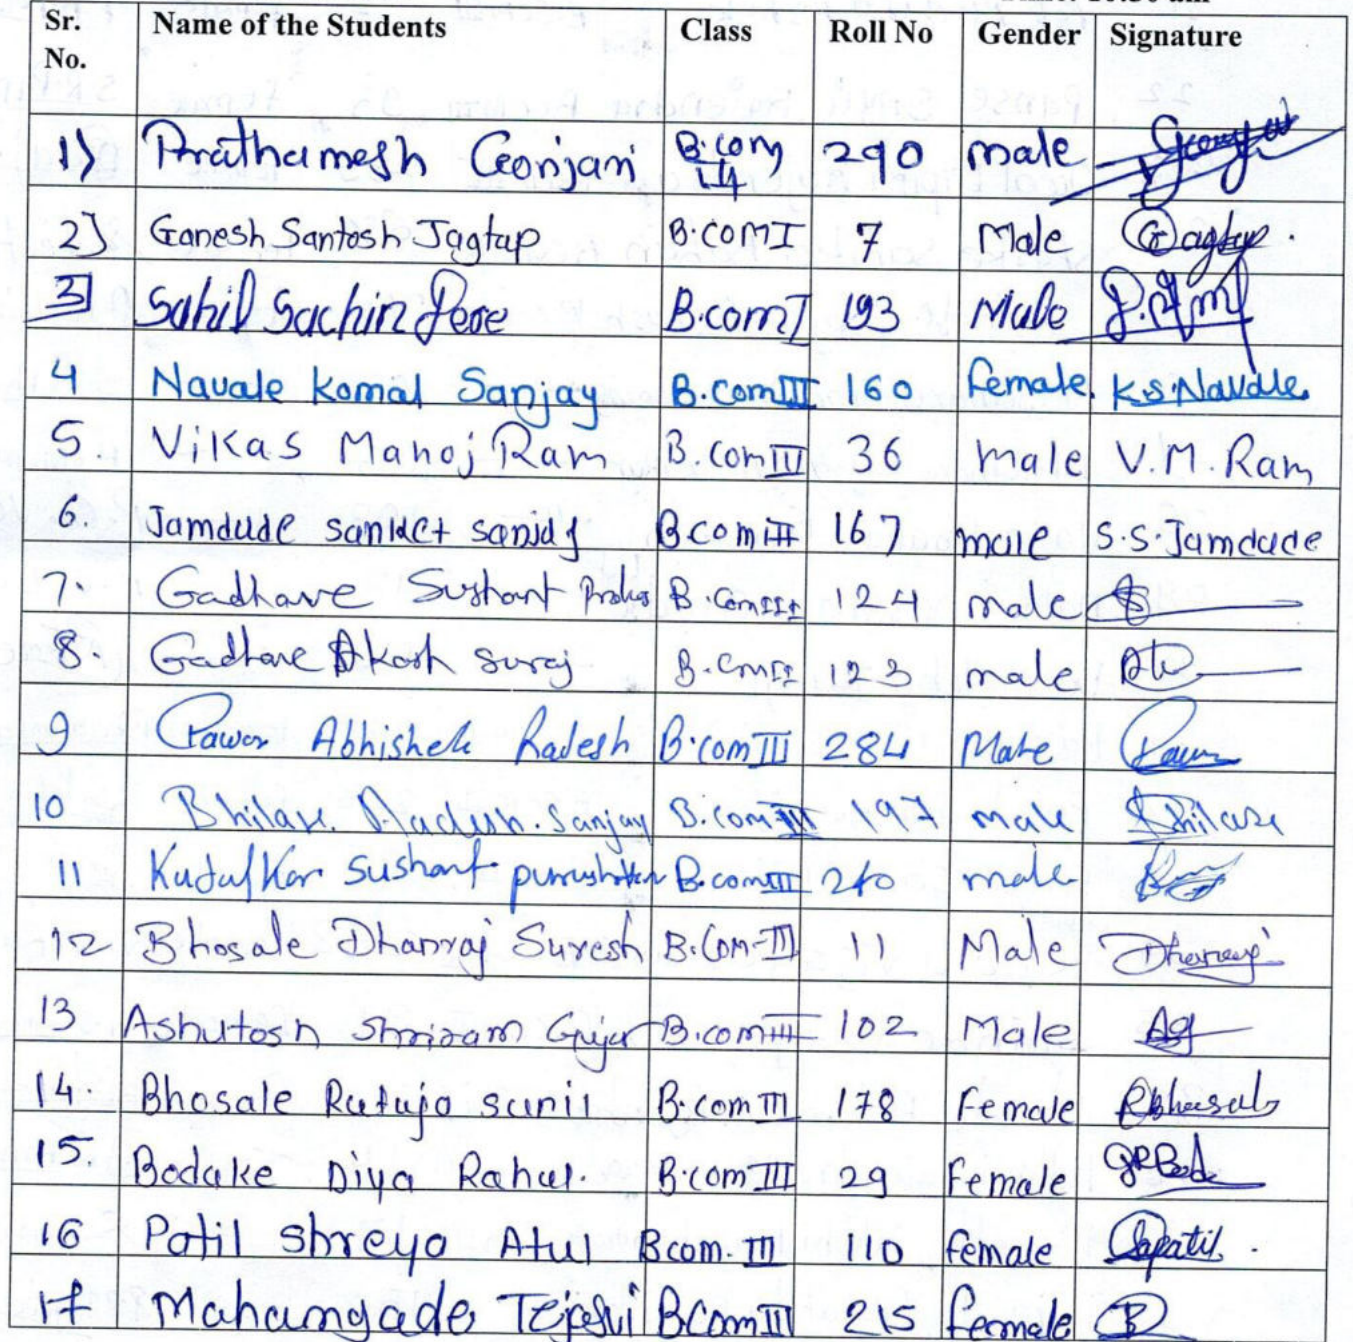 Sr. No. Name of the Students Class Roll No Gender Signature
1) Prathamesh Gonjari B.com III 290 male
2) Ganesh Santosh Jagtap B.COM I 7 Male Jagtap.
3] Sahil Sachin Dere B.com I 193 Male
4 Navale Komal Sanjay B.com III 160 female K.S.Navale
5 Vikas Manoj Ram B.com III 36 male V.M.Ram
6 Jamdade sanket sanjay B.com III 167 male S.S.Jamdade
7. Gadhave Sushant B.com III 124 male
8. Gadhave Akash suraj 123 male
9 Pawar Abhishek Rajesh B.com III 284 Male Pawar
10 Bhilare Sanjay B.com III 197 male Bhilare
11 Sushant B.com III 240 male
12 Bhosale Dhanraj Suresh B.Com-III 11 Male Dhanraj
13 Ashutosh Shriram Gujar B.com III 102 Male Ag
14 Bhosale Rutuja sunil B.com III 178 Female Rbhosale
15 Bodake Diya Rahul. B.com III 29 Female
16 Patil Shreya Atul Bcom. III 110 female Sapatil.
17 Mahangade Tejasvi BCom III 215 female